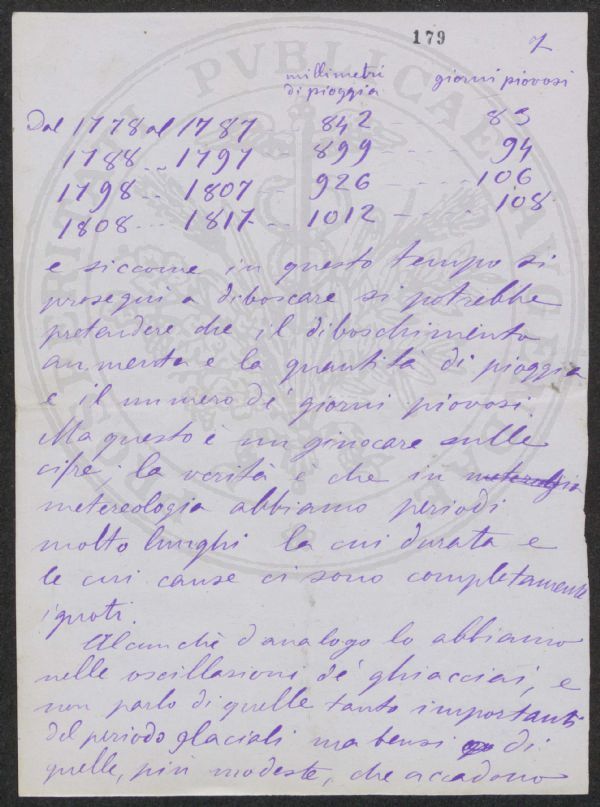 179 7
millimetri giorni piovosi
di pioggia
Dal 1778 al 1787 -- 842 -- 83
1788 -- 1797 -- 899 -- 94
1798 -- 1807 -- 926 -- 106
1808 -- 1817 -- 1012 -- 108
e siccome in questo tempo si
proseguì a diboscare si potrebbe
pretendere che il diboschimento
aumenta e la quantità di pioggia
e il numero de' giorni piovosi.
Ma questo è un giuocare sulle
cifre; la verità è che in
metereologia abbiamo periodi
molto lunghi la cui durata e
le cui cause ci sono completamente
ignoti.
Alcunchè d'analogo lo abbiamo
nelle oscillazioni de' ghiacciai, e
non parlo di quelle tanto importanti
del periodo glaciali ma bensi di
quelle, più modeste, che accadono